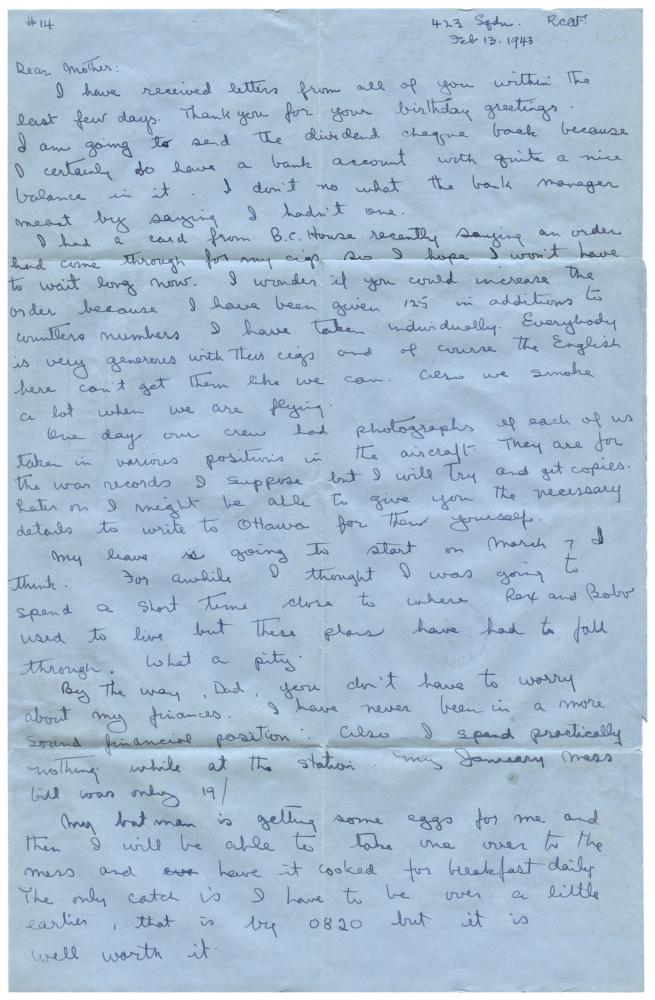 #14
423 Sqdn. RCAF
Feb 13. 1943
Dear Mother:
I have received letters from all of you within the
last few days. Thank you for your birthday greetings.
I am going to send the dividend cheque back because
I certainly do have a bank account with quite a nice
balance in it. I don't no what the bank manager
meant by saying I hadn't one.
I had a card from B.C. House recently saying an order
had come through for my cigs so I hope I won't have
to wait long now. I wonder if you could increase the
order because I have been given 125 in additions to
countless numbers I have taken individually. Everybody
is very generous with their cigs and of course the English
here can't get them like we can. Also we smoke
a lot when we are flying.
One day our crew had photographs of each of us
taken in various positions in the aircraft. They are for
the war records I suppose but I will try and get copies.
Later on I might be able to give you the necessary
details to write to Ottawa for them yourself.
My leave is going to start on March 7 I
think. For awhile I thought I was going to
spend a short time close to where Rex and Babs
used to live but these plans have had to fall
through. What a pity.
By the way, Dad, you don't have to worry
about my finances. I have never been in a more
sound financial position. Also I spend practically
nothing while at the station. My January mess
bill was only 19/
My batman is getting some eggs for me and
then I will be able to take one over to the
mess and have it cooked for breakfast daily
The only catch is I have to be over a little
earlier, that is by 0820 but it is
well worth it.